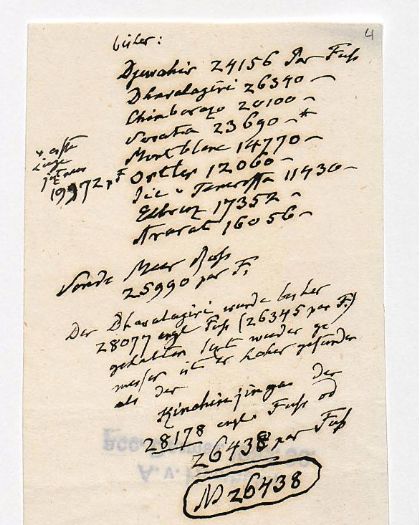 4
bisher:
Djawahir 24156 Par Fuß
Dhavalagiri 26340 —
Chimborazo 20100 —
Sorata 23690 — *
Montblanc 14770 —
Ortler 12060 —
Pic v Teneriffa 11430 —
Elbruz 17352 —
Ararat 16056 —
19972 p F
Sonde Meer Roß
25990 par F.
Der Dhavalagiri wurde bisher
28077 engl Fuß (26345 par F.)
gehalten jezt wieder ge
messen ist er höher gefunden
als der
Kinchinjinga der
28178 engl Fuß od
26438 par Fuß
26438